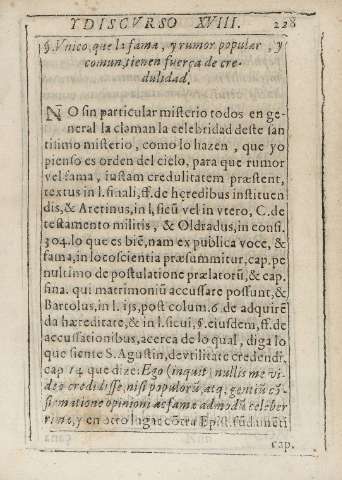 Y DISCVRSO XVIII. 228
§. Vnico, que la fama, y rumor popular, y
comun, tienen fuerça de cre-
dulidad.
NO sin particular misterio todos en ge-
neral la claman la celebridad deste san
tissimo misterio, como lo hazen, que yo
pienso es orden del cielo, para que rumor
vel fama, iustam credulitatem præstent,
textus in l. finali, ff. de hęredibus instituen
dis, & Aretinus, in l, sicũ vel in vtero, C. de
testamento militis, & Oldradus, in consi.
304. lo que es biẽ, nam ex publica voce, &
fama, in loco scientia præsummitur, cap. pe
nultimo de postulatione prælatorũ, & cap.
fina. qui matrimoniũ accussare possunt, &
Bartolus, in l. ijs, post colum. 6. de adquirẽ
da hæreditate, & in l. sicui, §. eiusdem, ff. de
accussationibus, acerca de lo qual, diga lo
que siente S. Agustin, de vtilitate credendi,
cap 14 que dize: Ego (inquit) nullis me vi
deo credidisse, nisi populorũ, atq, gentiũ cõ
firmatione opinioni ac famæ admodũ celeber
rimæ, y en otro lugar cõtra Epist. fũdamẽti
cap.